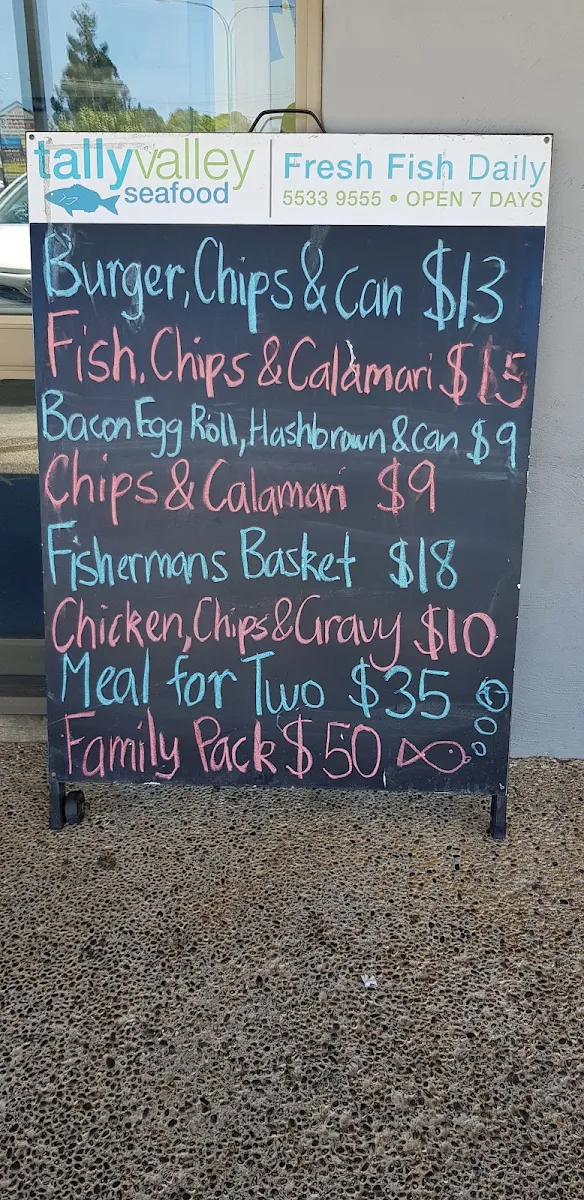 tallyvalley
seafood
Fresh Fish Daily
5533 9555 • OPEN 7 DAYS
Burger, Chips & Can $13
Fish, Chips & Calamari $15
Bacon Egg Roll, Hashbrown & Can $9
Chips & Calamari $9
Fishermans Basket $18
Chicken, Chips & Gravy $10
Meal for Two $35
Family Pack $50